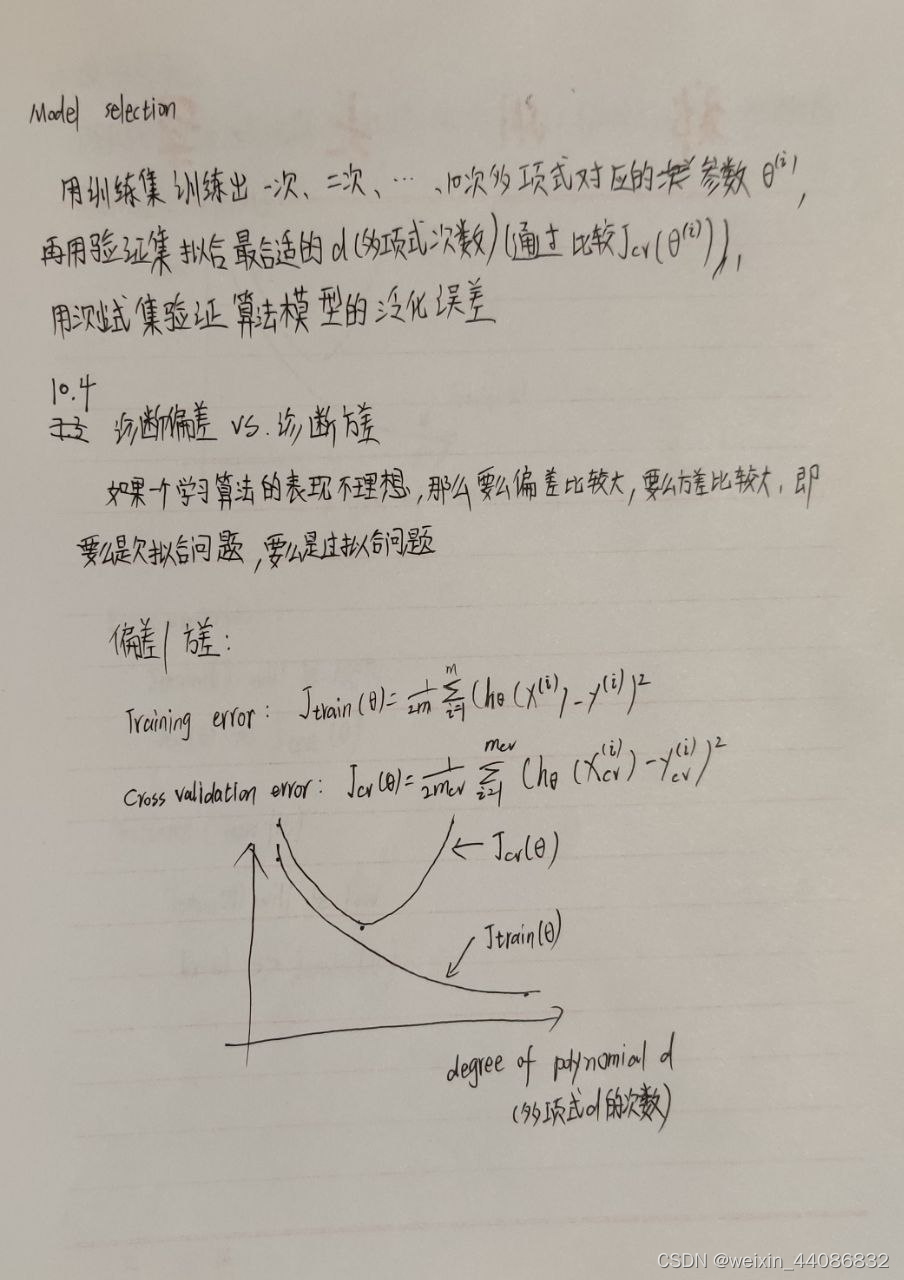 Model selection
用训练集训练出一次、二次、…、10次多项式对应的参数 θ⁽ⁱ⁾,
再用验证集拟合最合适的d(多项式次数)(通过比较Jcv(θ⁽ⁱ⁾)),
用测试集验证算法模型的泛化误差
10.4
诊断偏差 vs. 诊断方差
如果一个学习算法的表现不理想,那么要么偏差比较大,要么方差比较大,即
要么是欠拟合问题,要么是过拟合问题
偏差/方差:
Training error: Jtrain(θ)=1/2m ∑ᵢ₌₁ᵐ (hθ(x⁽ⁱ⁾)-y⁽ⁱ⁾)²
Cross validation error: Jcv(θ)=1/2mcv ∑ᵢ₌₁ᵐᶜᵛ (hθ(xcv⁽ⁱ⁾)-ycv⁽ⁱ⁾)²
Jcv(θ)
Jtrain(θ)
degree of polynomial d
(多项式d的次数)
CSDN @weixin_44086832